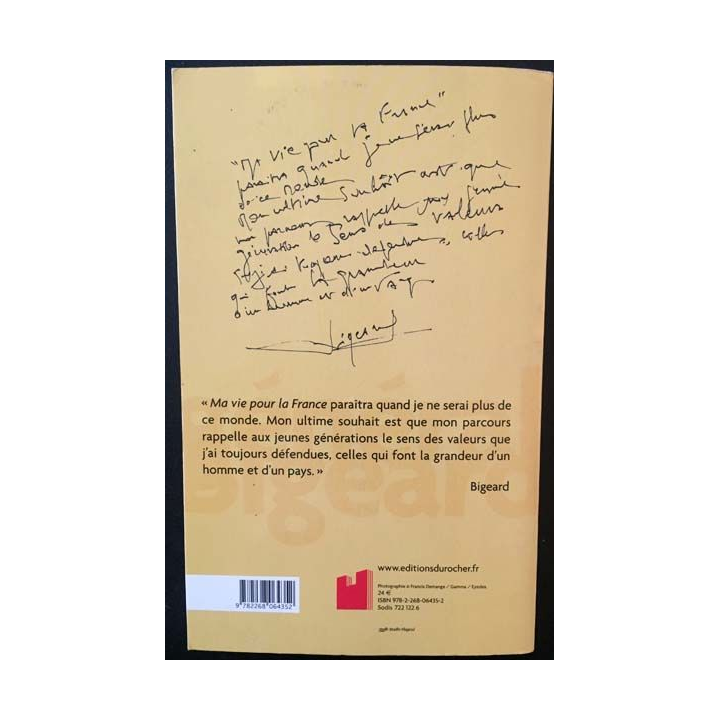 "Ma vie pour la France"
paraitra quand je ne serai plus
de ce monde
Mon ultime souhait est que
mon parcours rappelle aux jeunes
générations le sens des valeurs
que j'ai toujours défendues, celles
qui font la grandeur
d'un homme et d'un pays
Bigeard
« Ma vie pour la France paraîtra quand je ne serai plus de
ce monde. Mon ultime souhait est que mon parcours
rappelle aux jeunes générations le sens des valeurs que
j'ai toujours défendues, celles qui font la grandeur d'un
homme et d'un pays. »
Bigeard
Bigeard
www.editionsdurocher.fr
Photographie © Francis Demange / Gamma / Eyedea
24 €
ISBN 978-2-268-06435-2
Sodis 722 122 6
9 782268 064352